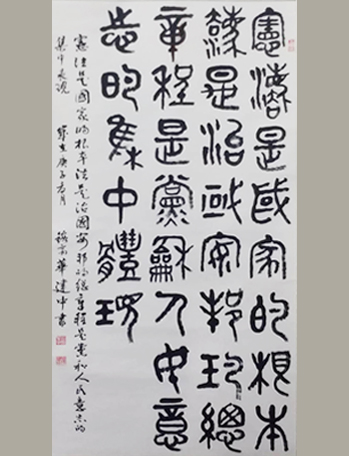 憲灋是國家的根本
灋是治國安邦的總
章程是黨龢人民意
志的集中體現
憲法是國家的根本法是治國安邦的總章程是黨和人民意志的
集中 現 歲在庚子 月 華建中書